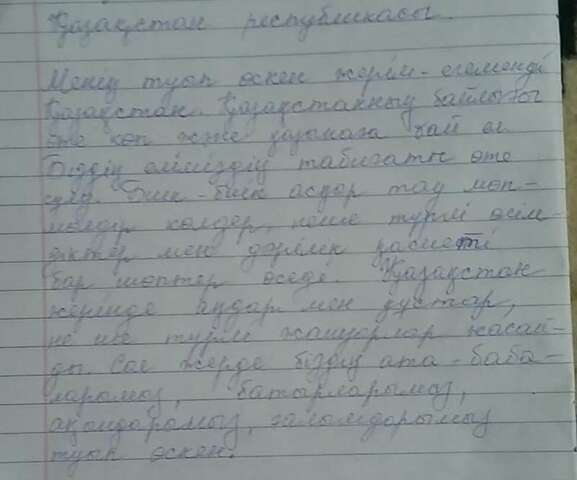 Қазақстан республикасы.
Менің туып өскен жерім - егеменді
Қазақстан. Қазақстанның байлығы
өте көп және қазынаға бай ел.
Біздің еліміздің табиғаты өте
сұлу. Биік-биік асқар тау мөп-
мөлдір көлдер, неше түрлі өсім-
діктер мен дәрілік қасиеті
бар шөптер өседі. Қазақстан
жерінде аңдар мен құстар,
не ше түрлі жануарлар жасай-
ды. Сол жерде біздің ата-баба-
ларымыз, батырларымыз,
ақындарымыз, ғалымдарымыз
туып өскен.